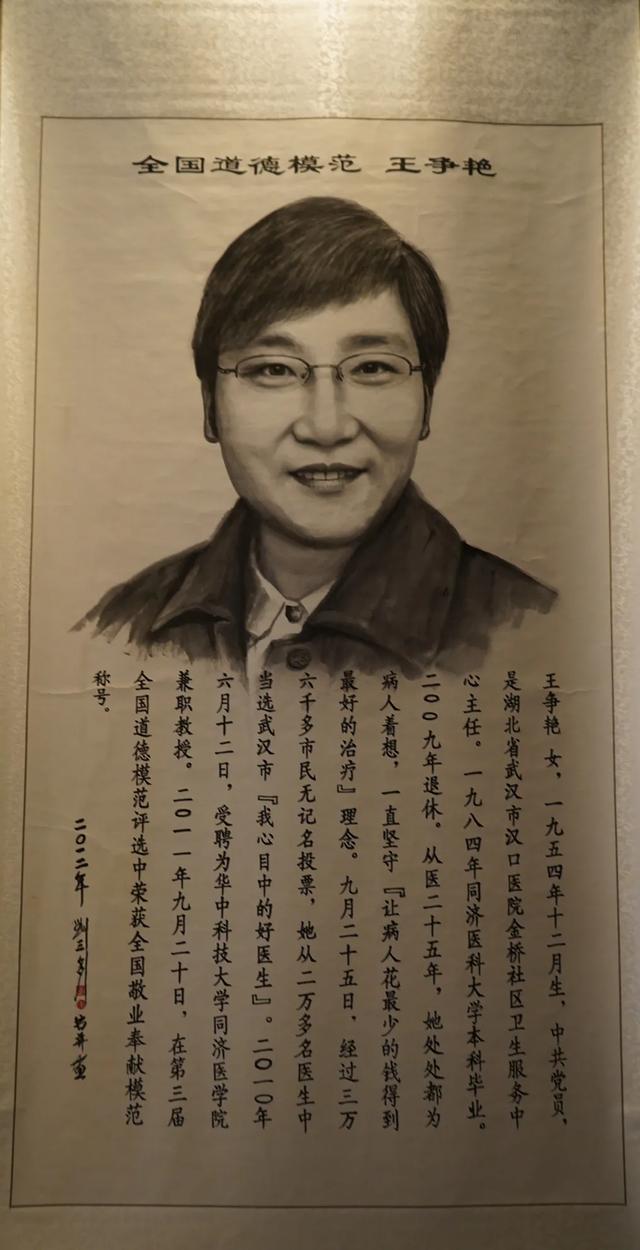 全国道德模范 王争艳
王争艳 女，一九五四年十二月生，中共党员，
是湖北省武汉市汉口医院金桥社区卫生服务中
心主任。一九八四年同济医科大学本科毕业。
二〇〇九年退休。从医二十五年，她处处都为
病人着想，一直坚守『让病人花最少的钱得到
最好的治疗』理念。九月二十五日，经过三万
六千多市民无记名投票，她从二万多名医生中
当选武汉市『我心目中的好医生』。二〇一〇年
六月十二日，受聘为华中科技大学同济医学院
兼职教授。二〇一一年九月二十日，在第三届
全国道德模范评选中荣获全国敬业奉献模范
称号。
二〇一二年